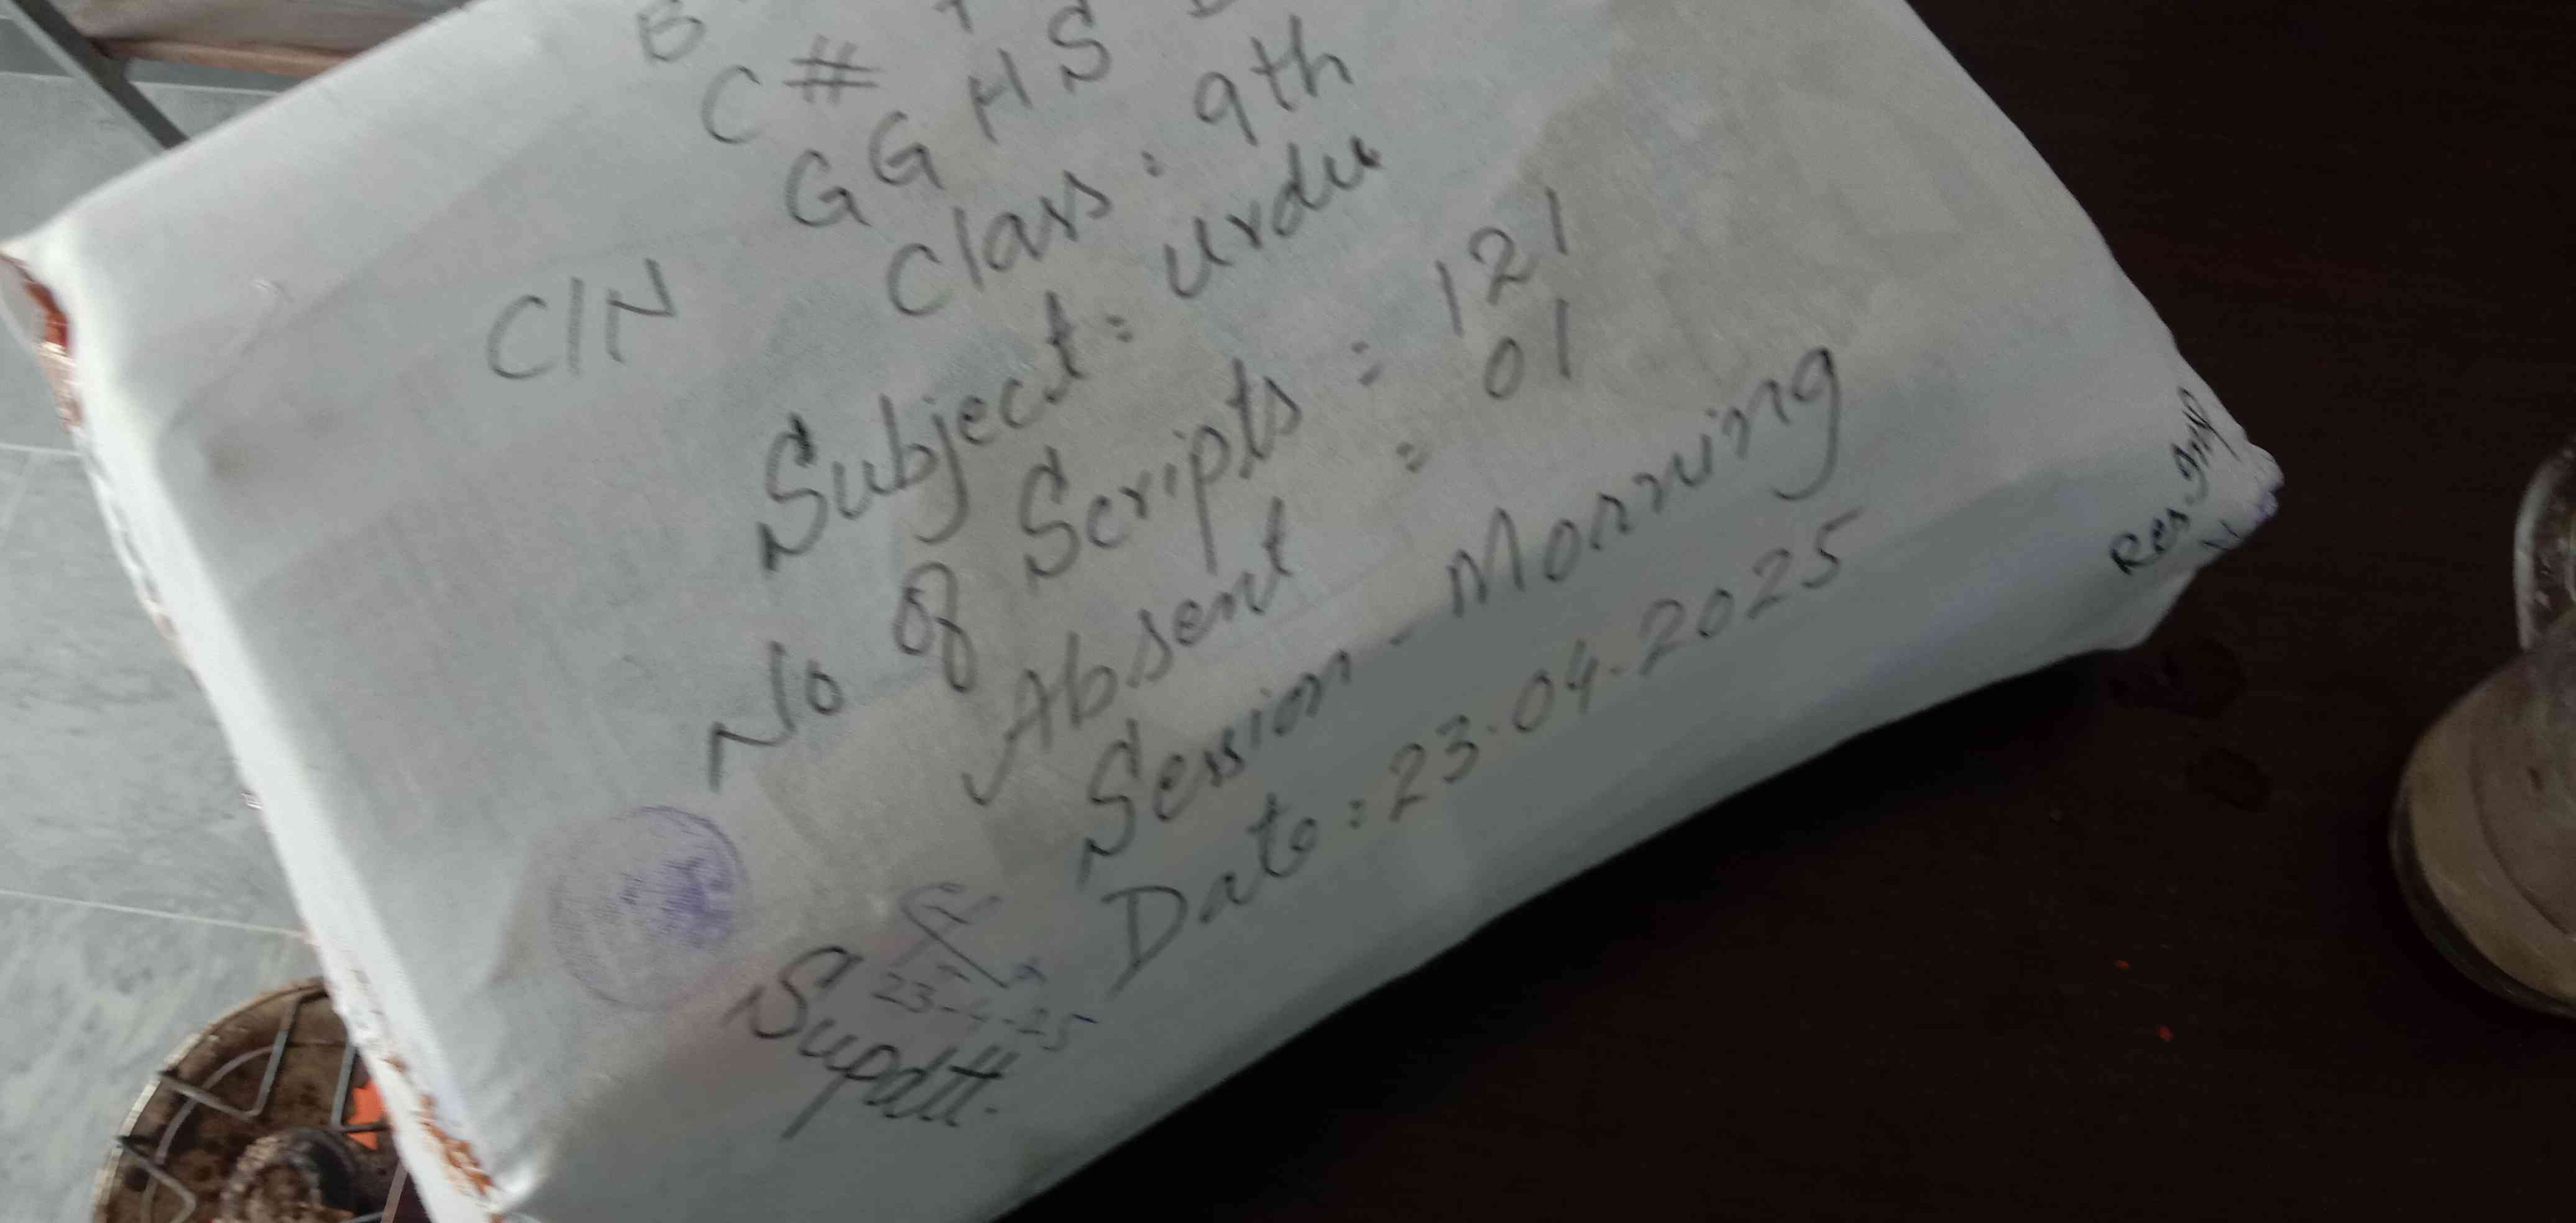 C #
GGHS
Class : 9th
C/N
Subject = urdu
No of Scripts = 121
Absent = 01
Session - Morning
Date : 23.04.2025
23-4-25
Supdtt.